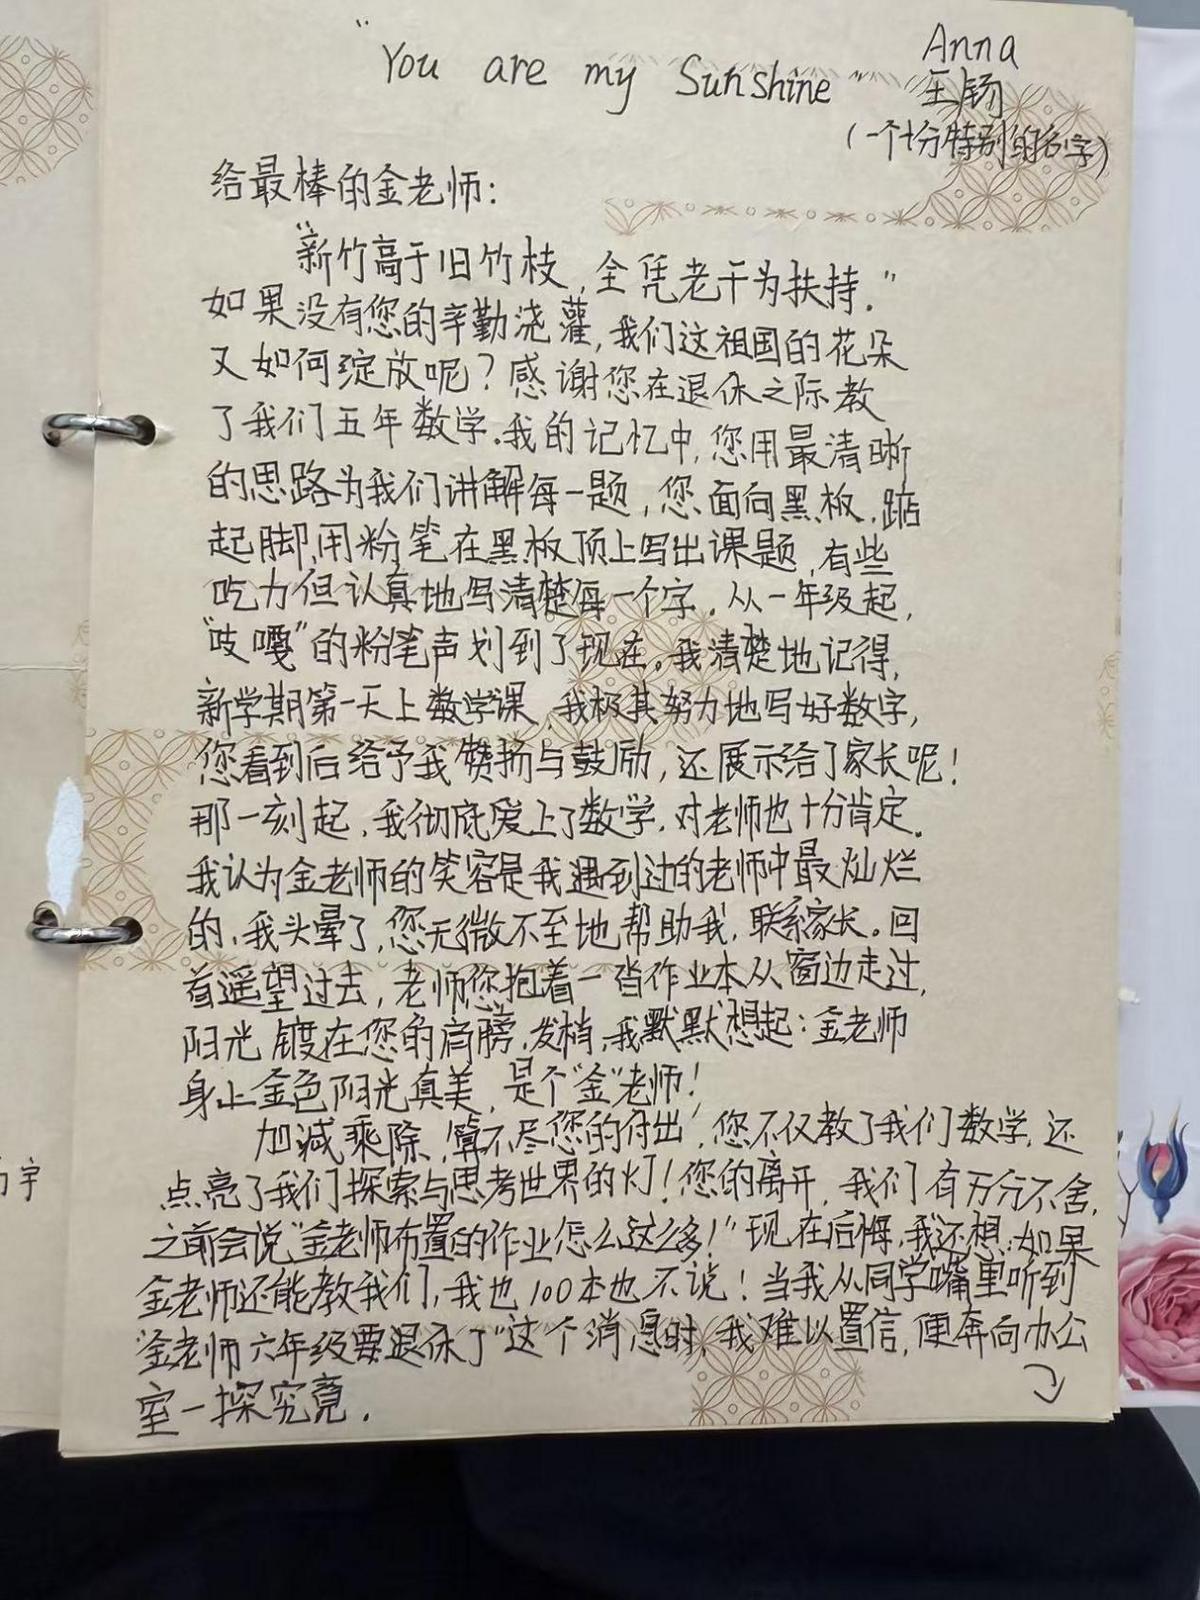 "You are my Sunshine"
Anna
王钖
(一个十分特别的名字)
给最棒的金老师:
"新竹高于旧竹枝,全凭老干为扶持."
如果没有您的辛勤浇灌,我们这祖国的花朵
又如何绽放呢?感谢您在退休之际教
了我们五年数学.我的记忆中,您用最清晰
的思路为我们讲解每一题,您面向黑板,踮
起脚,用粉笔在黑板顶上写出课题,有些
吃力但认真地写清楚每一个字.从一年级起,
"吱嘎"的粉笔声划到了现在。我清楚地记得,
新学期第一天上数学课,我极其努力地写好数字,
您看到后给予我赞扬与鼓励,还展示给了家长呢!
那一刻起,我彻底爱上了数学,对老师也十分肯定.
我认为金老师的笑容是我遇到过的老师中最灿烂
的,我头晕了,您无微不至地帮助我,联系家长。回
首遥望过去,老师您抱着一沓作业本从窗边走过,
阳光镀在您的肩膀,发梢,我默默想起:金老师
身上金色阳光真美,是个"金"老师!
加减乘除,算不尽您的付出,您不仅教了我们数学,还
点亮了我们探索与思考世界的灯!您的离开,我们有万分不舍,
之前会说"金老师布置的作业怎么这么多!"现在后悔,我还想:如果
金老师还能教我们,我也100本也不说!当我从同学嘴里听到
"金老师六年级要退休了"这个消息时,我难以置信,便奔向办公
室一探究竟.
宇